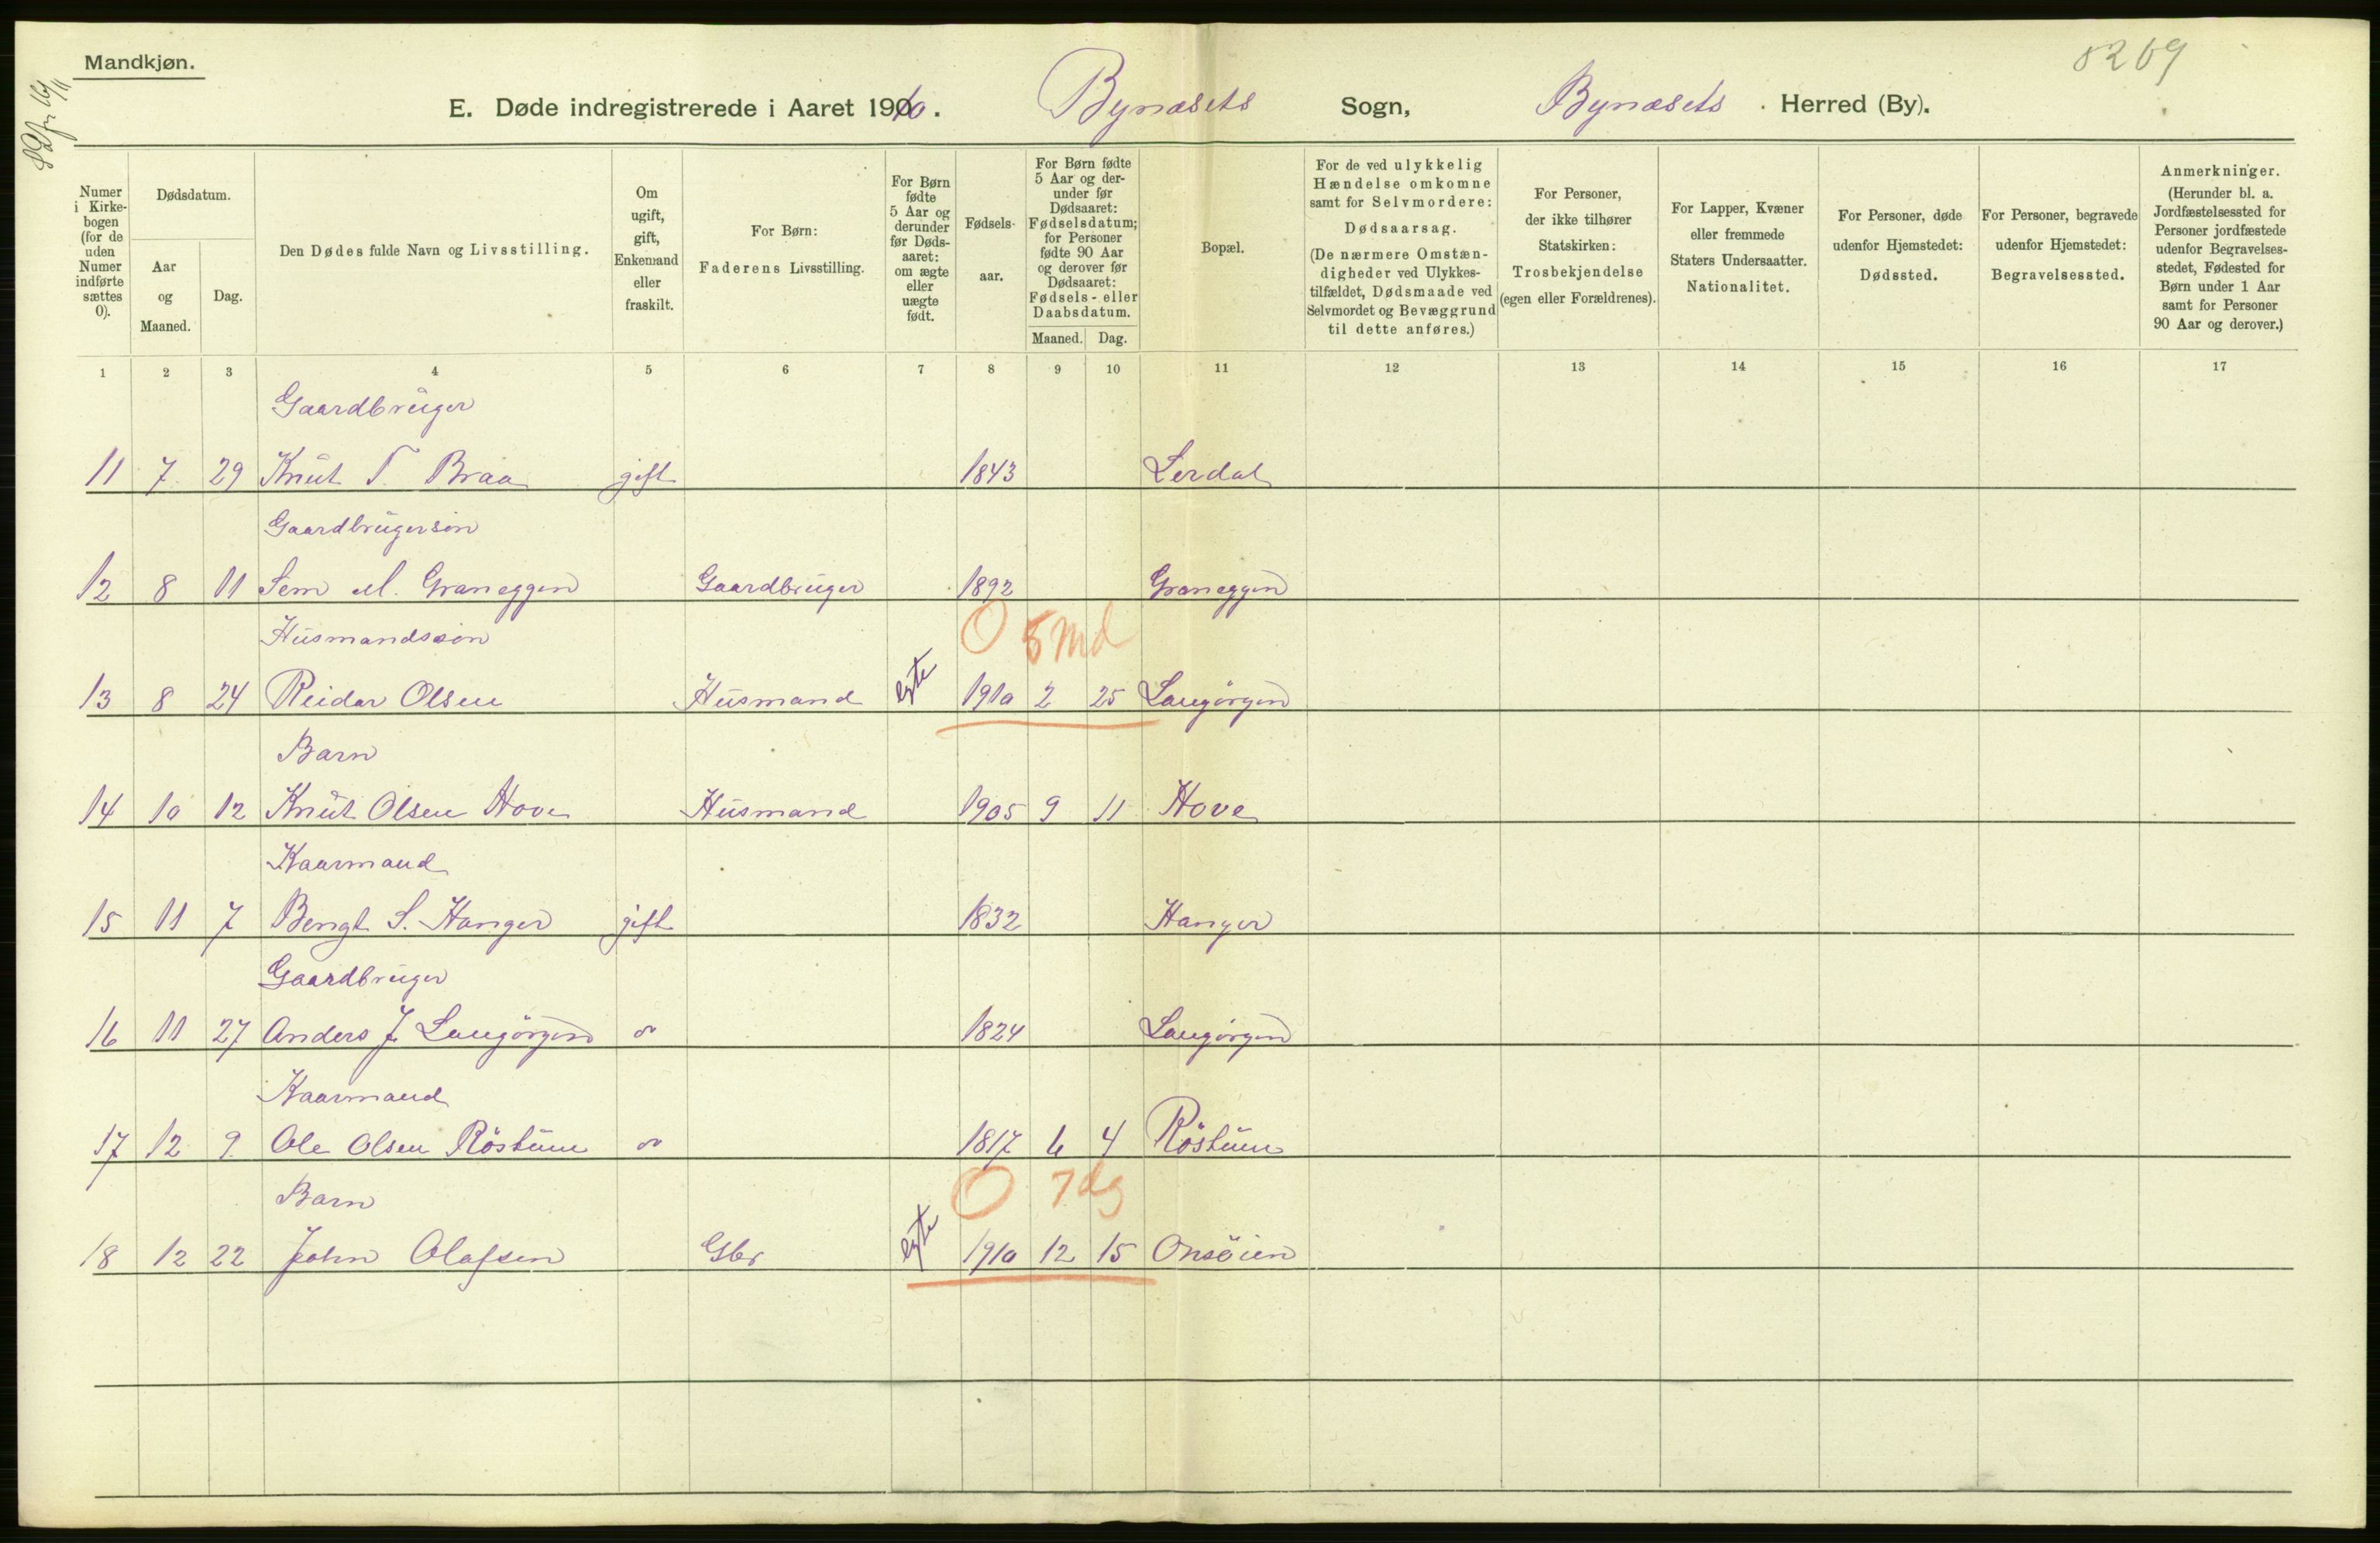 Mandkjøn.
8269
E. Døde indregistrerede i Aaret 1910. Bynæsets Sogn, Bynæsets Herred (By).
Numer i Kirkebogen (for de uden Numer indførte sættes 0).
Dødsdatum.
Aar og Maaned.
Dag.
Den Dødes fulde Navn og Livsstilling.
Om ugift, gift, Enkemand eller fraskilt.
For Børn: Faderens Livsstilling.
For Børn fødte 5 Aar og derunder før Dødsaaret: om ægte eller uægte født.
Fødselsaar.
For Børn fødte 5 Aar og derunder før Dødsaaret: Fødselsdatum; for Personer fødte 90 Aar og derover før Dødsaaret: Fødsels- eller Daabsdatum.
Maaned. Dag.
Bopæl.
For de ved ulykkelig Hændelse omkomne samt for Selvmordere: Dødsaarsag. (De nærmere Omstændigheder ved Ulykkestilfældet, Dødsmaade ved Selvmordet og Bevæggrund til dette anføres.)
For Personer, der ikke tilhører Statskirken: Trosbekjendelse (egen eller Forældrenes).
For Lapper, Kvæner eller fremmede Staters Undersaatter. Nationalitet.
For Personer, døde udenfor Hjemstedet: Dødssted.
For Personer, begravede udenfor Hjemstedet: Begravelsessted.
Anmerkninger. (Herunder bl. a. Jordfæstelsessted for Personer jordfæstede udenfor Begravelsesstedet, Fødested for Børn under 1 Aar samt for Personer 90 Aar og derover.)
1 2 3 4 5 6 7 8 9 10 11 12 13 14 15 16 17
Gaardbruger
11 7 29 Knut T. Braa gift 1843 Lerdal
Gaardbrugersøn
12 8 11 Sem M. Graneggen Gaardbruger 1892 Graneggen
Husmandssøn
0 5 md
13 8 24 Reidar Olsen Husmand egte 1910 2 25 Langørgen
Barn
14 10 12 Knut Olsen Hove Husmand 1905 9 11 Hove
Kaarmand
15 11 7 Bengt S. Hanger gift 1832 Hanger
Gaardbruger
16 11 27 Anders J. Langørgen " 1824 Langørgen
Kaarmand
17 12 9 Ole Olsen Röstum " 1817 6 4 Röstum
Barn
0 7 dg
18 12 22 John Olafsen Gbr egte 1910 12 15 Onsöien